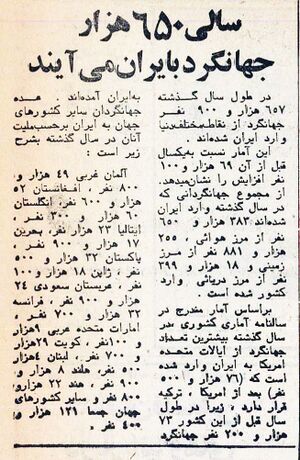 سالی ۶۵۰ هزار
جهانگرد بایران می‌آیند
در طول سال گذشته
۶۵۷ هزار و ۹۰۰ نفر
جهانگرد از نقاط مختلف دنیا
وارد ایران شده‌اند.
این آمار نسبت به یکسال
قبل از آن ۶۹ هزار و ۱۰۰
نفر افزایش را نشان‌میدهد.
از مجموع جهانگردانی که
در سال گذشته وارد ایران
شده‌اند ۳۸۳ هزار و ۶۵۰
نفر از مرز هوائی ، ۲۵۵
هزار و ۸۸۱ نفر از مرز
زمینی و ۱۸ هزار و ۳۹۹
نفر از مرز دریائی وارد
کشور شده است .
براساس آمار مندرج در
سالنامه آماری کشوری ، در
سال گذشته بیشترین تعداد
جهانگرد از ایالات متحده
امریکا به ایران وارد شده
است که (۷۶ هزار و ۵۰۰
نفر) بعد از امریکا ، ترکیه
قرار دارد ، زیرا در طول
سال قبل از این کشور ۷۳
هزار و ۲۰۰ نفر جهانگرد
به‌ایران آمده‌اند . عده
جهانگردان سایر کشورهای
جهان به ایران برحسب‌ملیت
آنان در سال گذشته بشرح
زیر است :
آلمان غربی ۴۹ هزار و
۸۰۰ نفر ، افغانستان ۵۲
هزار و ۶۰۰ نفر انگلستان
۶۰ هزار و ۳۰۰ نفر ،
ایتالیا ۲۳ هزار نفر ، بحرین
۱۷ هزار و ۹۰۰ نفر ،
پاکستان ۳۲ هزار و ۵۰۰
نفر ، ژاپن ۱۸ هزار و ۱۰۰
نفر ، عربستان سعودی ۲۴
هزار و ۹۰۰ نفر ، فرانسه
۳۲ هزار و ۷۰۰ نفر ،
امارات متحده عربی ۹ هزار
و ۱۰۰ نفر ، کویت ۲۹ هزار
و ۷۰۰ نفر ، لبنان ۴ هزار
و ۵۰۰ نفر ، هلند ۸ هزار و
۹۰۰ نفر ، هند ۲۲ هزار و
۸۰۰ نفر و سایر کشورهای
جهان جمعا ۱۳۱ هزار و
۴۰۰ نفر .